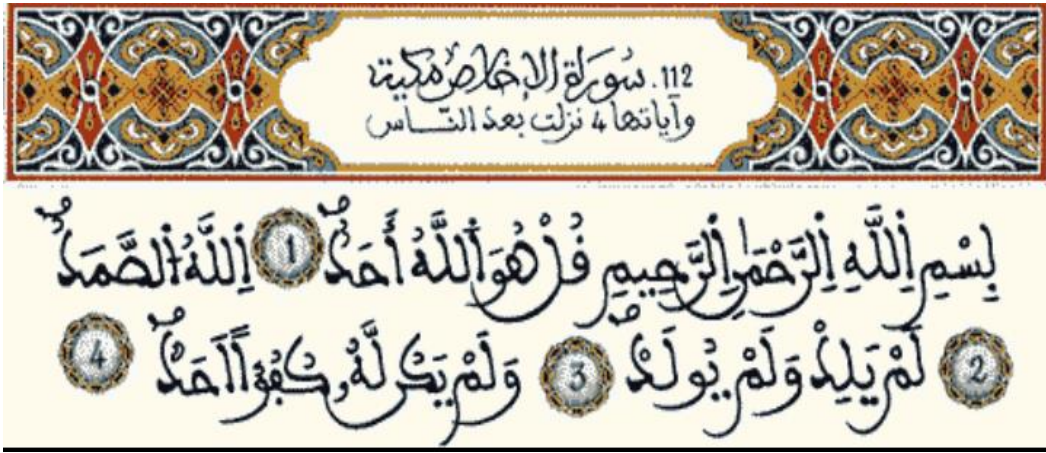 112. سُورَة الإخلاص مكية
وآياتها 4 نزلت بعد النّــاس
بِسْمِ اِللَّهِ اِلرَّحْمَٰنِ اِلرَّحِيمِ قُلْ هُوَ اَللَّهُ أَحَدٌ 1 اَللَّهُ اُلصَّمَدُ
2 لَمْ يَلِدْ وَلَمْ يُولَدْ 3 وَلَمْ يَكُن لَّهُۥ كُفُؤاً اَحَدٌ 4